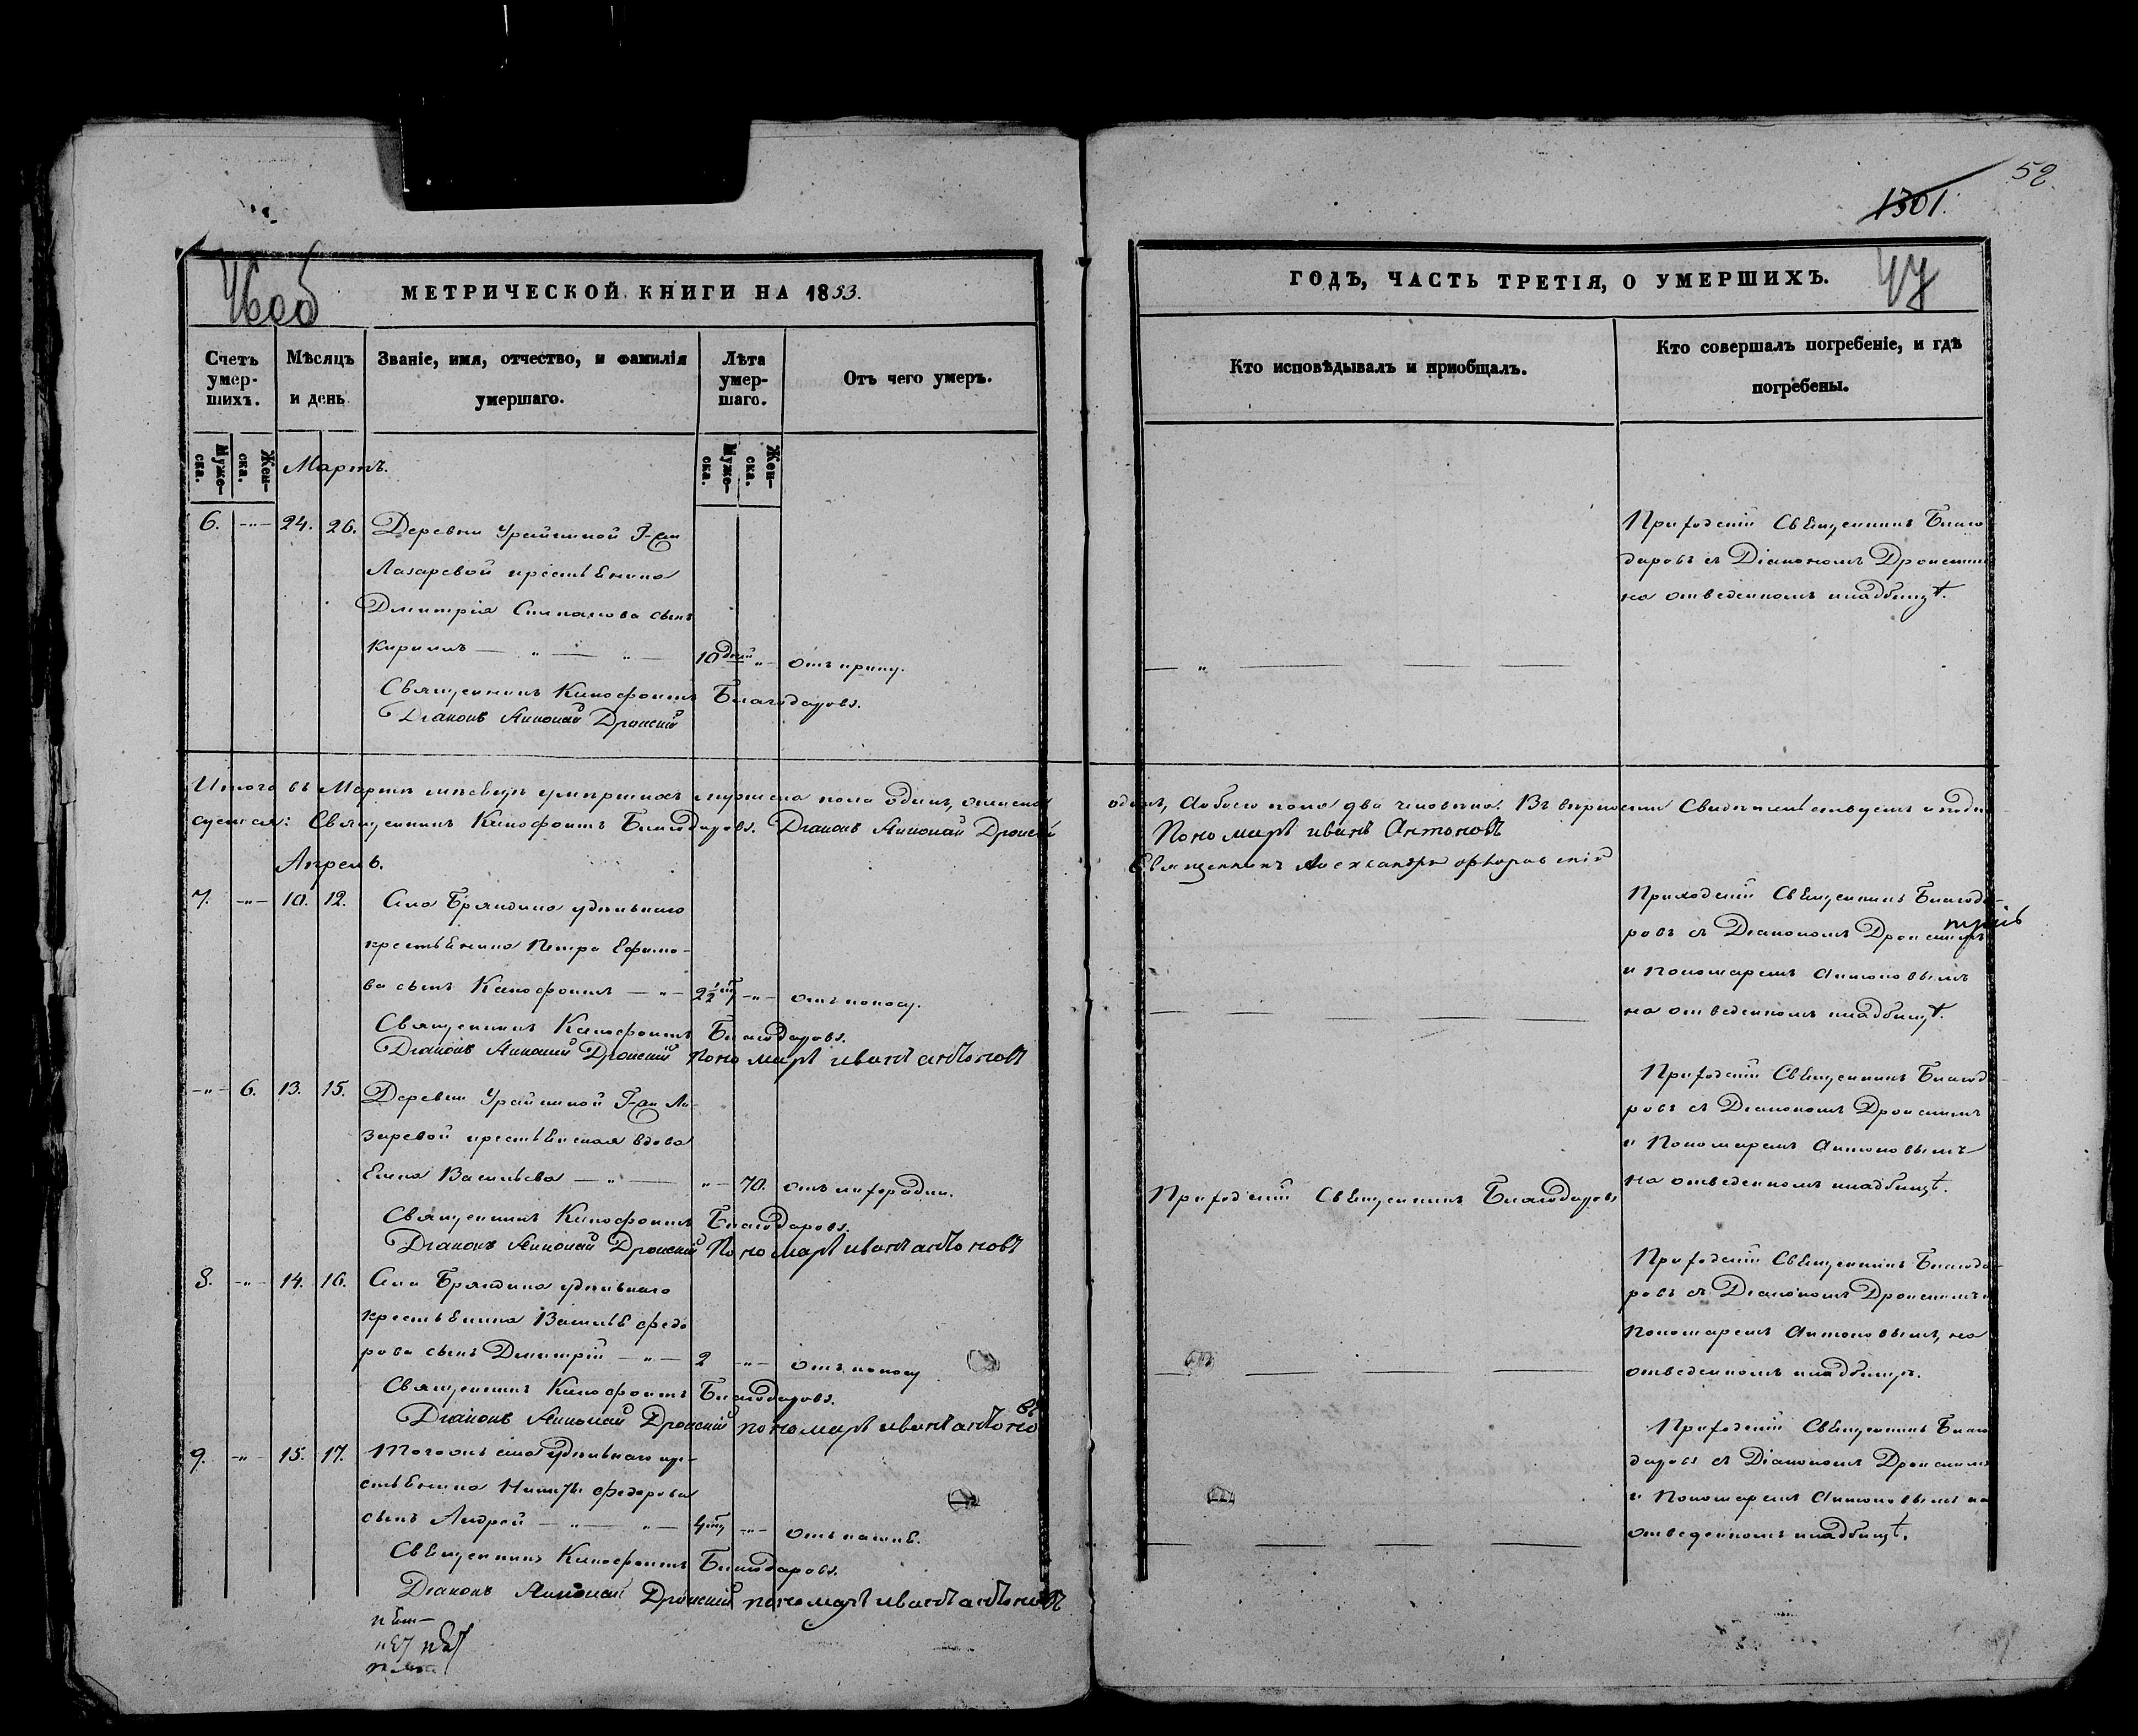 52.
1301.
46об
МЕТРИЧЕСКОЙ КНИГИ НА 1853.
Счетъ умер-шихъ.
Мѣсяцъ и день
Званіе, имя, отчество, и фамилія умершаго.
Лѣта умер-шаго.
Отъ чего умеръ.
Муже-ска.
Жен-ска.
Муже-ска.
Жен-ска.
Мартъ.
6. -„- 24. 26. Деревни Урайкиной
Лазаревой крестьянина
Дмитрія Степанова сынъ
Кирилъ — „ — „ — 10 дней „ - Отъ крику.
Священникъ Ксенофонтъ Благодаровъ.
Діаконъ Николай Дронскій
Итого въ Мартѣ мѣсяцѣ умершихъ мужеска пола одинъ, женска
суемся: Священникъ Ксенофонтъ Благодаровъ. Діаконъ Николай Дронскій
Апрель.
7. -„- 10. 12. Села Бряндина удѣльнаго
крестьянина Петра Ефимо-
ва сынъ Ксенофонтъ — „ — 2½ -„- отъ поносу.
Священникъ Ксенофонтъ Благодаровъ.
Діаконъ Николай Дронскій Пономарь иванъ антоновъ
-„- 6. 13. 15. Деревни Урайкиной Ла-
заревой крестьянская вдова
Елена Васильева — „ — „ - 70. отъ лихорадки.
Священникъ Ксенофонтъ Благодаровъ.
Діаконъ Николай Дронскій Пономарь иванъ антоновъ
8. -„- 14. 16. Села Бряндина удѣльнаго
крестьянина Василья Федо
рова сынъ Дмитрій — „ — 2 -„- Отъ поносу
Священникъ Ксенофонтъ Благодаровъ.
Діаконъ Николай Дронскій пономарь иванъ антоновъ
9. -„- 15. 17. Тогожъ села удѣльнаго кре-
стьянина Никиты Федорова
сынъ Андрей — „ — „ — 4 -„- Отъ кашля.
Священникъ Ксенофонтъ Благодаровъ.
Діаконъ Николай Дронскій пономарь иванъ антоновъ
ГОДЪ, ЧАСТЬ ТРЕТІЯ, О УМЕРШИХЪ.
47
Кто исповѣдывалъ и приобщалъ.
Кто совершалъ погребеніе, и гдѣ погребены.
Приходскій Священникъ Благо
даровъ съ Діакономъ Дронским
на отведенномъ кладбищѣ.
одинъ, Аобоего пола два человѣка. Въ вѣрности Свидѣтельствуемъ и подпи
Пономарь иванъ Антоновъ
Священникъ Александръ
Приходскій Священникъ Благода-
ровъ съ Діакономъ Дронскимъ
и Пономаремъ Антоновымъ
на отведенномъ кладбищѣ.
Приходскій Священникъ Благодаровъ
Приходскій Священникъ Благода-
ровъ съ Діакономъ Дронскимъ
и Пономаремъ Антоновымъ
на отведенномъ кладбищѣ.
Приходскій Священникъ Благода-
ровъ съ Діакономъ Дронскимъ и
Пономаремъ Антоновымъ, на
отведенномъ кладбищѣ.
Приходскій Священникъ Благо
даровъ съ Діакономъ Дронскимъ
и Пономаремъ Антоновымъ на
отведенномъ кладбищѣ.